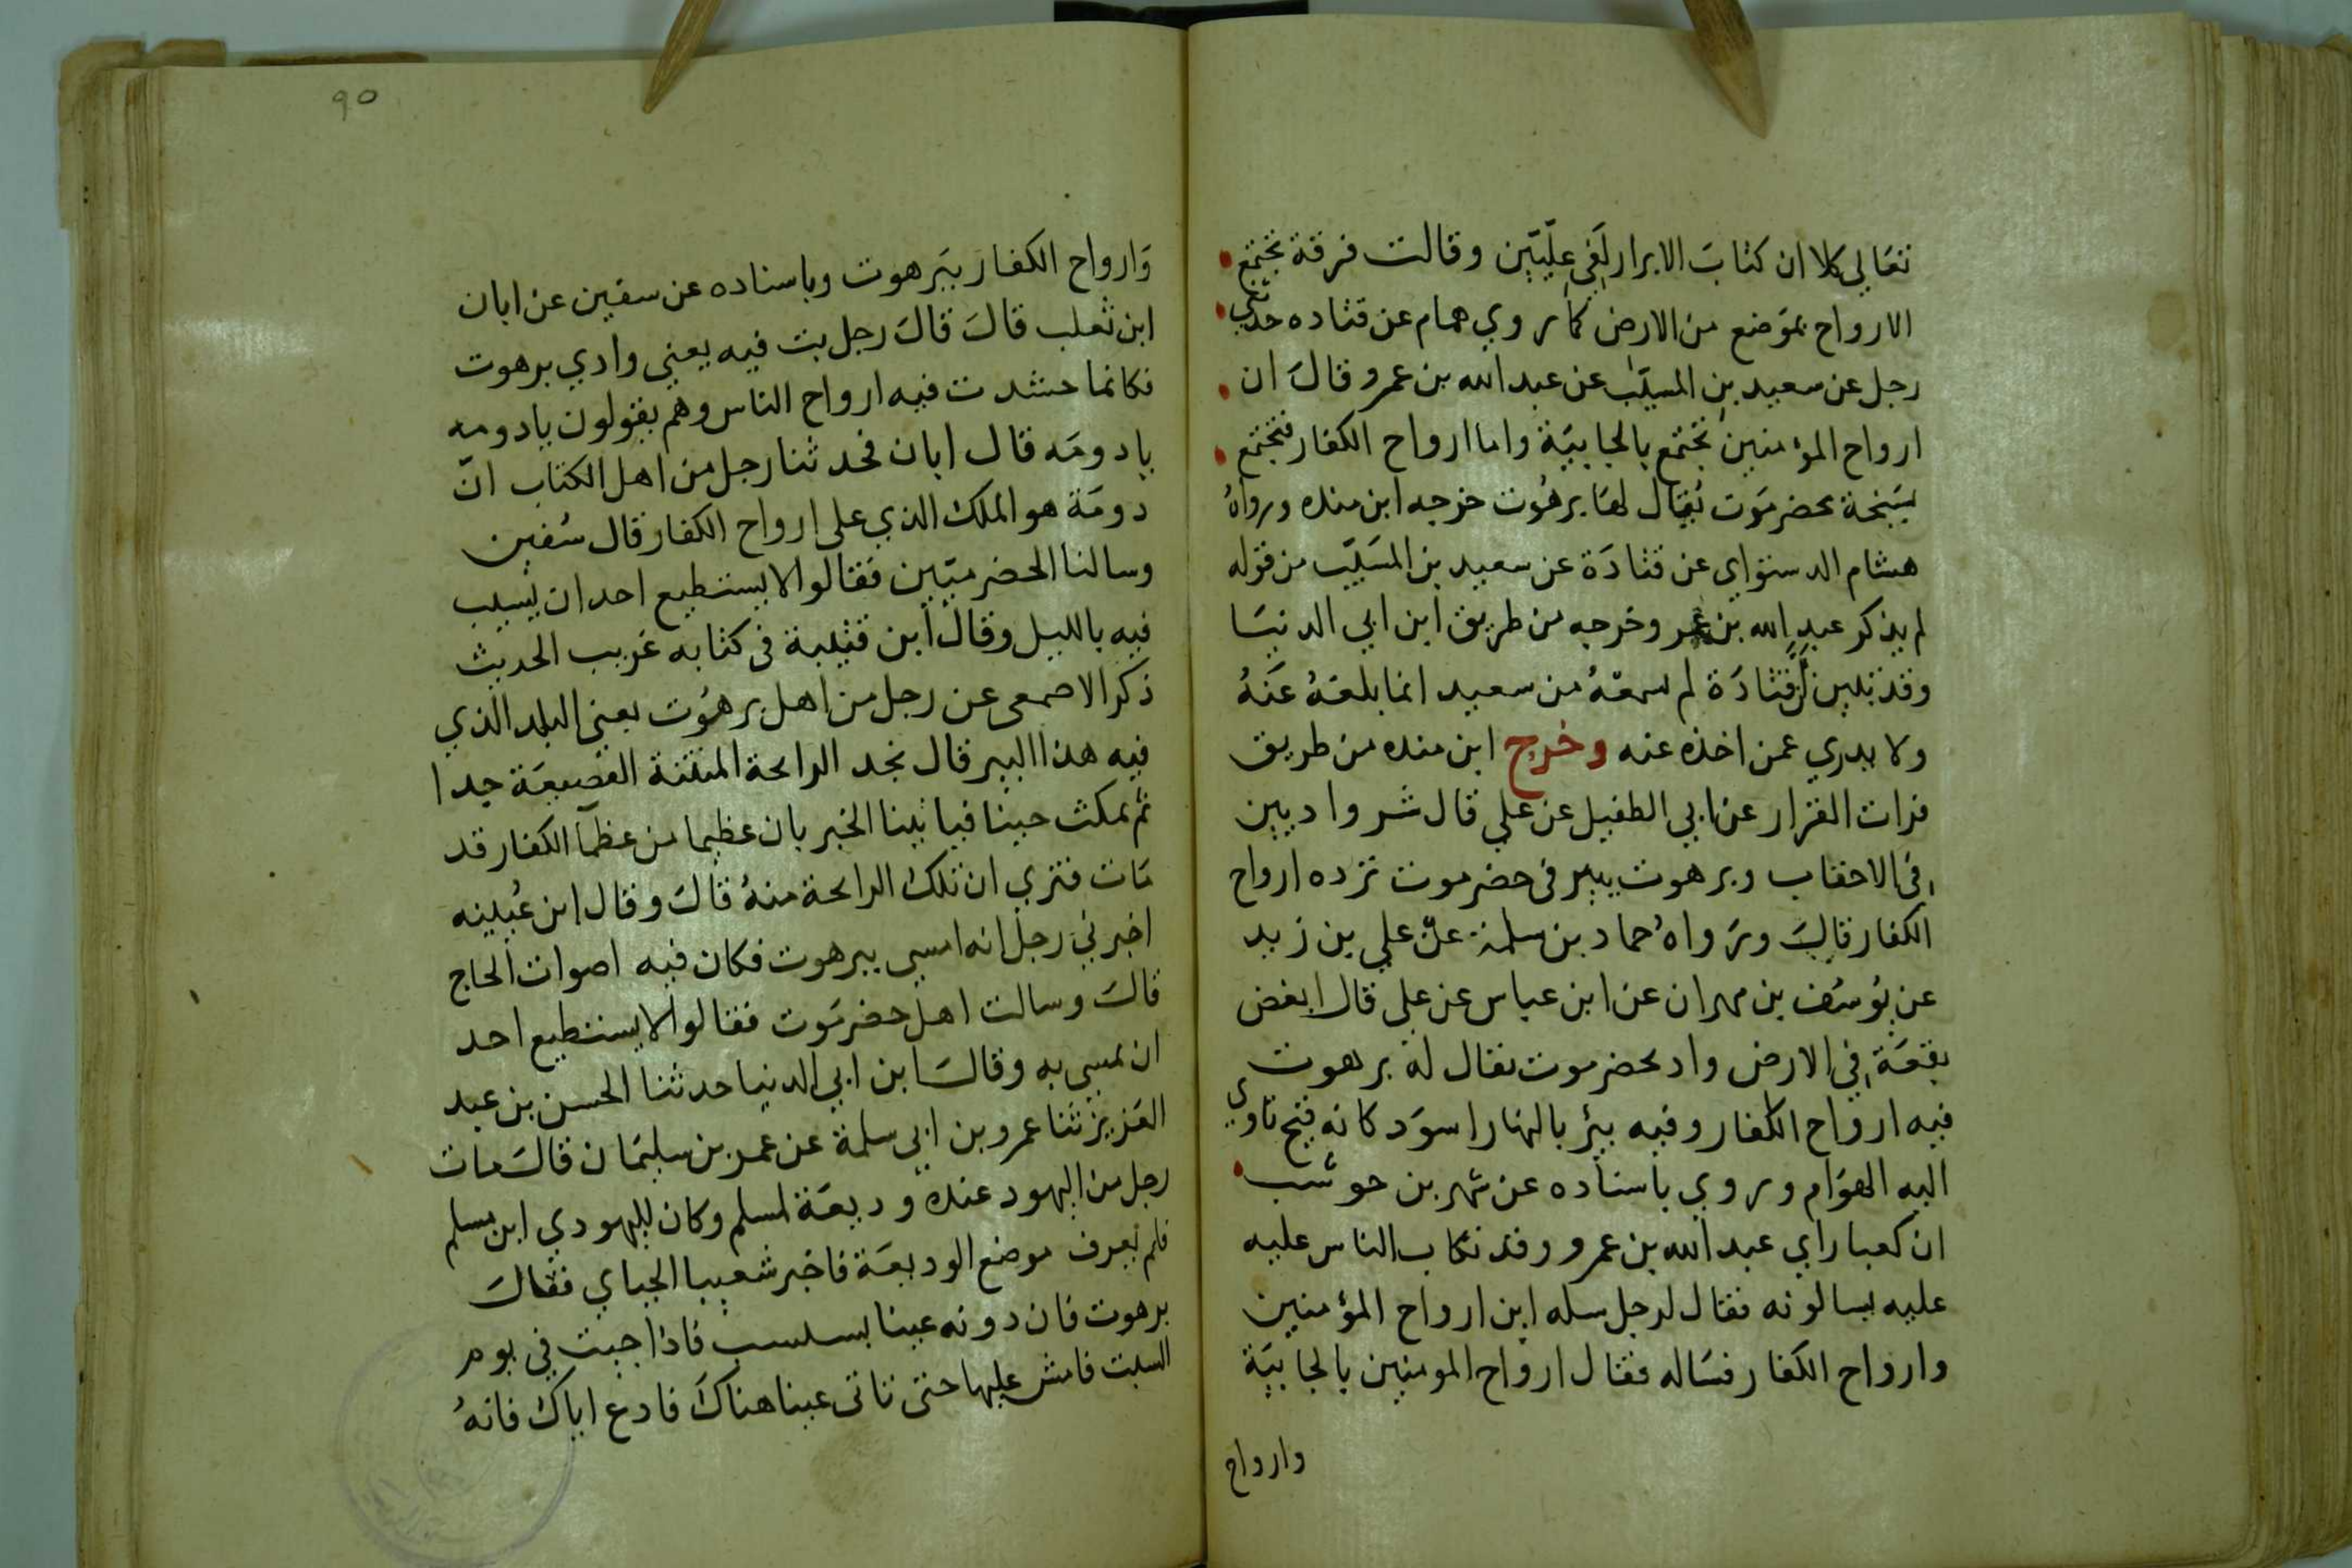 تعالى كلا ان كتاب الابرار لفي علّيّين وقالت فرقة تجتمع
الارواح بموضع من الارض كما روي همام عن قتاده حدثني
رجل عن سعيد بن المسيّب عن عبد الله بن عمرو قال ان
ارواح المؤمنين تجتمع بالجابيَة واما ارواح الكفار فتجتمع
بسَبخة بحضرمَوت يُقال لها برهُوت خرجه ابن منده ورواهُ
هشام الدستواي عن قتادَة عن سعيد بن المسَيّب من قوله
لم يذكر عبد الله بن عمر وخرجه من طريق ابن ابي الدنيَا
وقد تبين ان قتادَة لم يسمعْهُ من سعيد انما بلغهُ عَنهُ
ولا يدري عمن اخذه عنه وخرج ابن منده من طريق
فرات القزار عن ابي الطفيل عن علي قال شر واديين
في الاحقاب وبرهوت بيير في حضرموت ترده ارواح
الكفار قالَ ورَواهُ حماد بن سلمة عن علي بن زيد
عن يُوسُف بن مهران عن ابن عباس عن علي قال ابغض
بقعَة في الارض واد بحضرموت يقال له برهوت
فيه ارواح الكفار وفيه بيرٌ بالنهار اسوَد كانه قيح تاوي
اليه الهوَام وروي باسناده عن شهر بن حوشب
ان كعبا راي عبد الله بن عمرو وقد تكاب الناس عليه
عليه يسالونه فقال لرجل سله اين ارواح المؤمنين
وارواح الكفار فسَاله فقال ارواح المومنين بالجابيَة
وارواح
٩٥
وَارواح الكفار ببَرهوت وباسناده عن سفين عن ابان
ابن ثعلب قالَ قالَ رجل بت فيه يعني وادي برهوت
فكانما حشدت فيه ارواح الناس وهم يقولون يادومه
يادومَه قال ابان فحدثنا رجل من اهل الكتاب انّ
دومَة هو الملك الذي على ارواح الكفار قال سُفين
وسالنا الحضرميّين فقالوا لا يستطيع احد ان يبيت
فيه بالليل وقال ابن قتيبة في كتابه غريب الحديث
ذكر الاصمعى عن رجل من اهل برهُوت يعني البلد الذي
فيه هذا البير قال نجد الرايحة المنتنة الفضيعَة جدا
ثم نمكث حينا فياتينا الخبر بان عظيما من عظمآ الكفار قد
مَات فنري ان تلك الرايحة منهُ قالَ وقال ابن عُيينه
اخبرني رجل انه امسي ببرهوت فكان فيه اصوات الحاج
قالَ وسالت اهل حضرمَوت فقالوا لا يستطيع احد
ان يمسي به وقالَ ابن ابي الدنيا حدثنا الحسن بن عبد
العَزيز ثنا عمرو بن ابي سلمة عن عمر بن سليمَان قالَ مات
رجل من اليهود عنده وديعَة لمسلم وكان لليهودي ابن مسلم
فلم يعرف موضع الوديعَة فاخبر شعيبا الجباي فقالَ
برهوت فان دونه عينا فاذا جيت في يوم
السبت فامش عليها حتى تاتى عينا هناكَ فادع اباك فانهُ